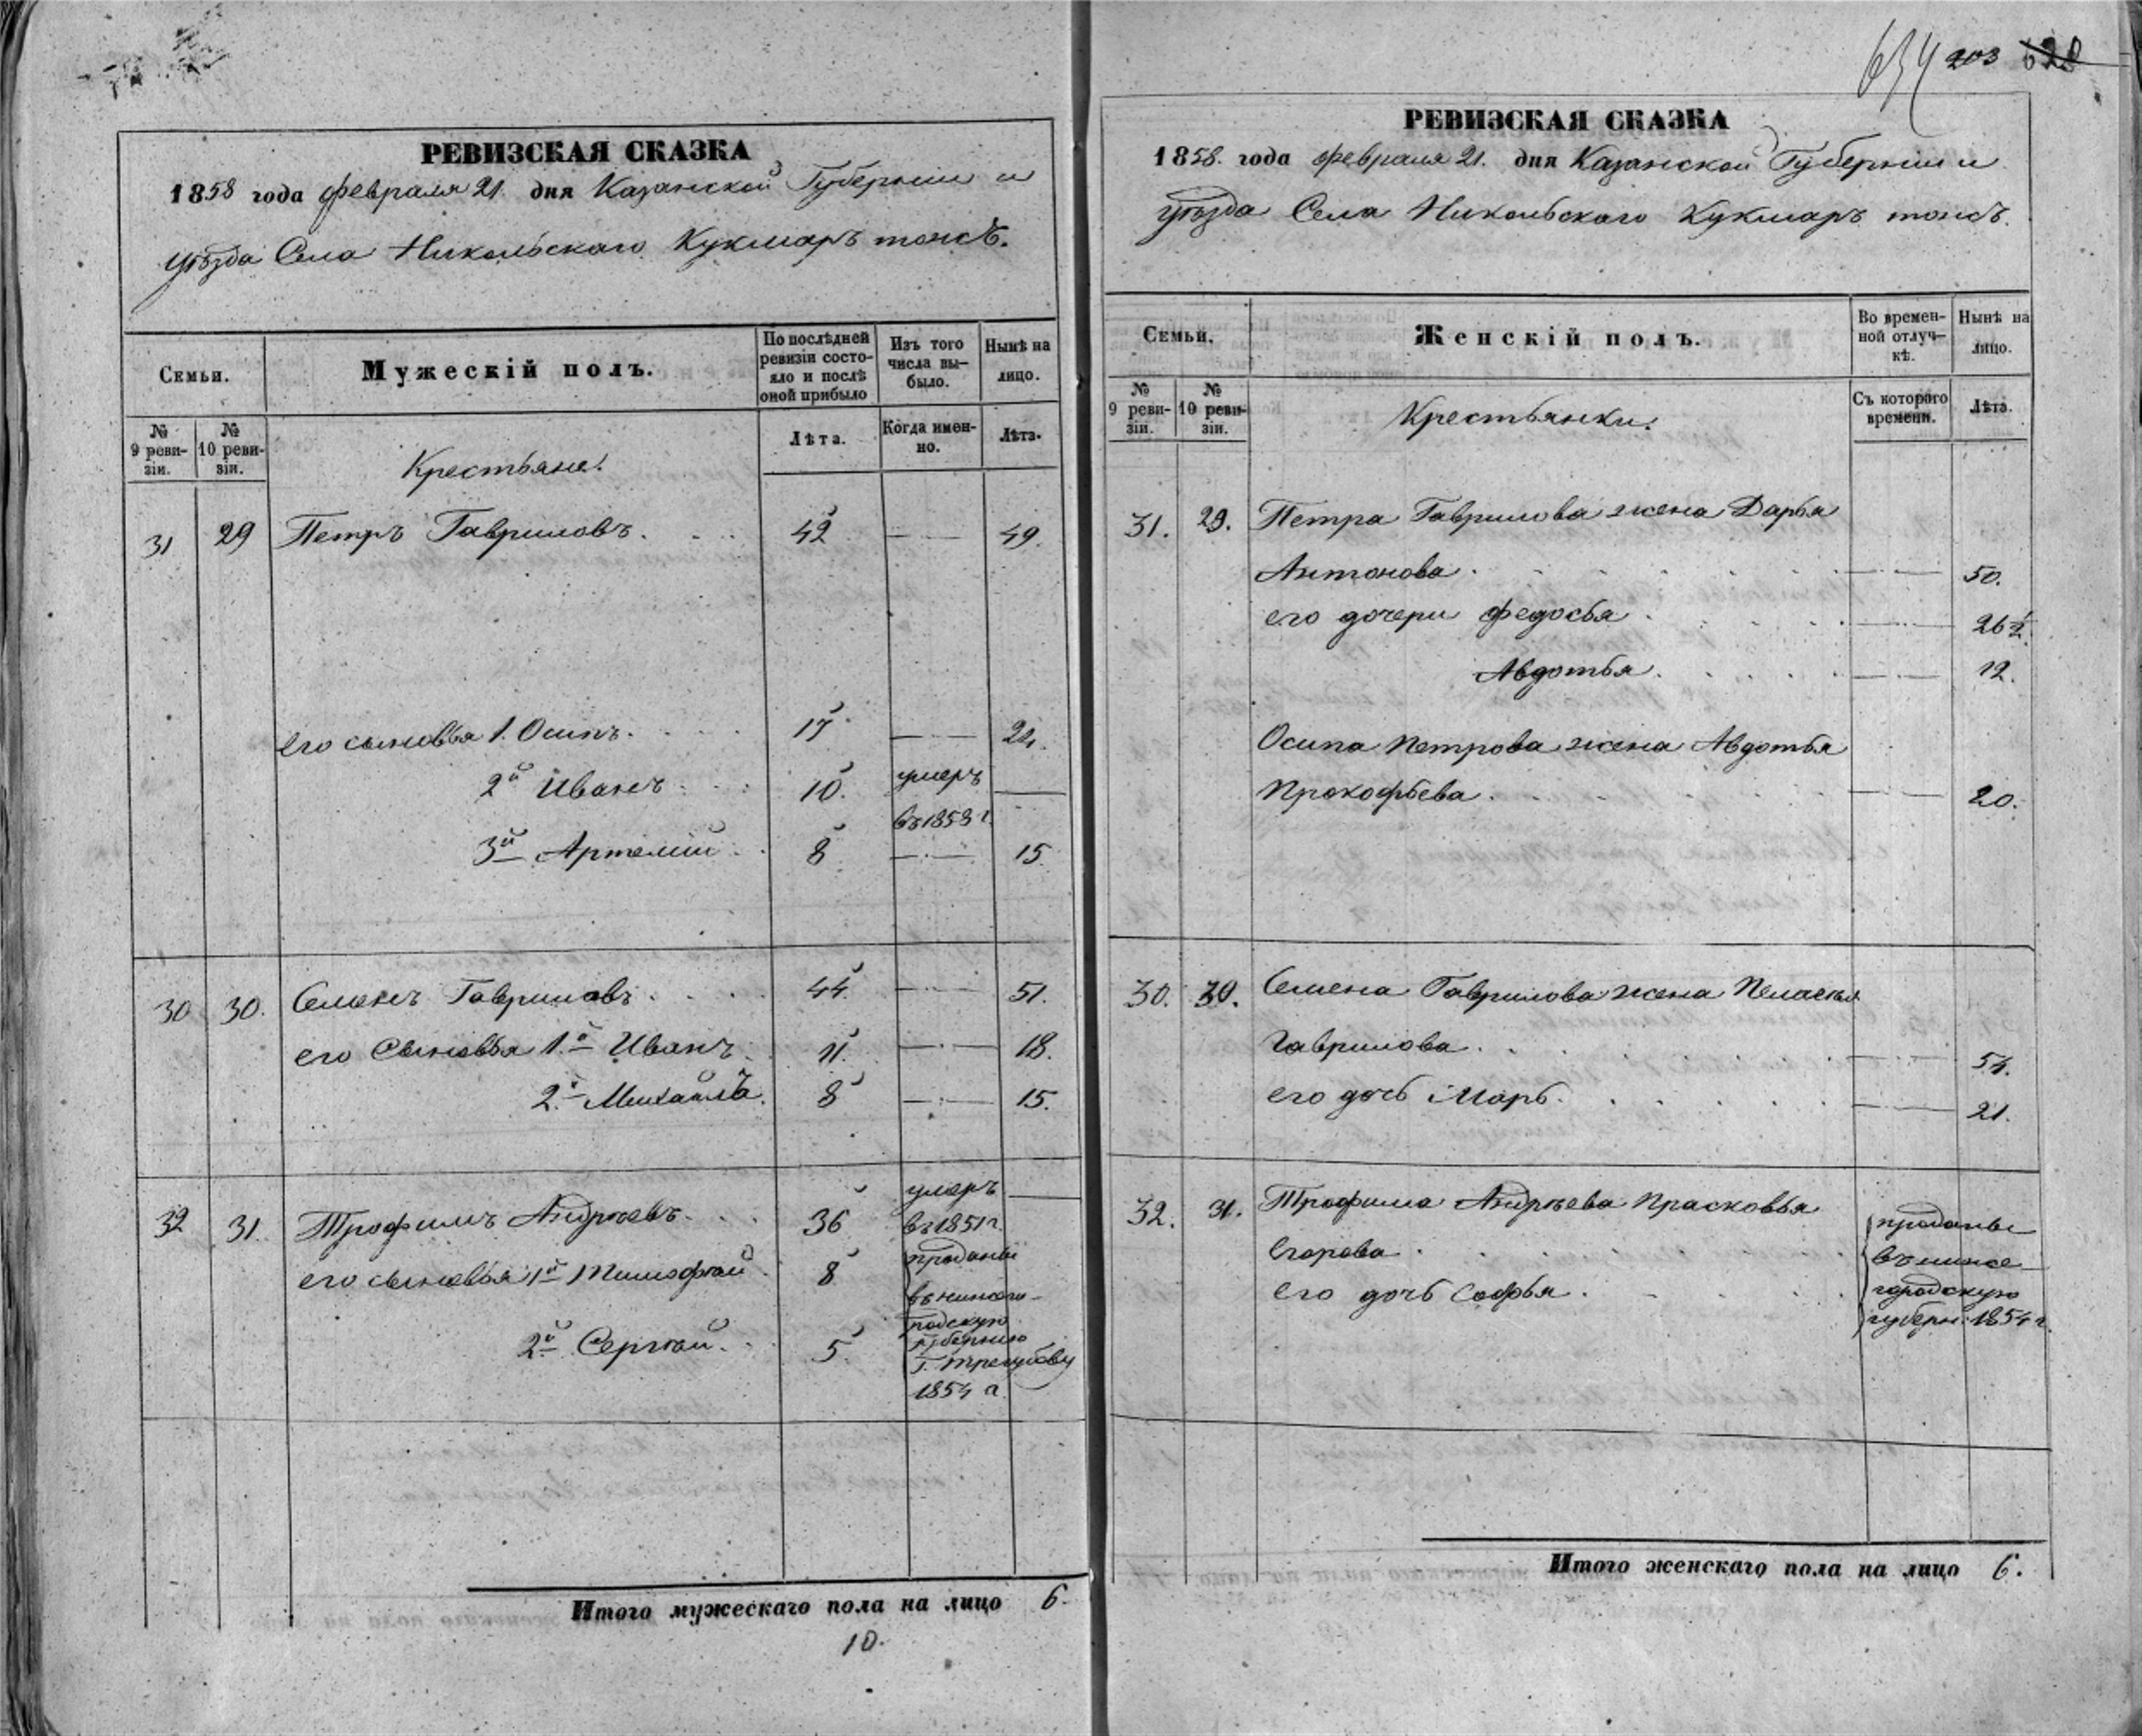 РЕВИЗСКАЯ СКАЗКА
1858 года февраля 21. дня Казанской Губерніи и
уѣзда Села Никольскаго Кукмаръ тожъ.
Семьи.
Мужескій полъ.
По послѣдней ревизіи состояло и послѣ оной прибыло
Изъ того числа выбыло.
Нынѣ на лицо.
№ 9 ревизіи.
№ 10 ревизіи.
Крестьяне.
Лѣта.
Когда именно.
Лѣта.
31 29 Петръ Гавриловъ. 42 49.
его сыновья 1. Осипъ. 17 24.
2й Иванъ 10. умеръ
въ 1858 г.
3й Артемій 8 15.
30 30. Семенъ Гавриловъ 44. 51.
его Сыновья 1.й Иванъ 11. 18.
2.й Михайлъ. 8 15.
32 31. Трофимъ Андреевъ. 36 умеръ
въ 1851 г.
его сыновья 1й Тимофѣй 8 проданы
въ нижего-
родскую
2й Сергѣй. 5. губернію
Г. 
1854 г.
Итого мужескаго пола на лицо 6.
10.
634 203 620
РЕВИЗСКАЯ СКАЗКА
1858. года февраля 21. дня Казанской Губерніи и
уѣзда Села Никольскаго Кукмаръ тожъ.
Семьи.
Женскій полъ.
Во временной отлучкѣ.
Нынѣ на лицо.
№ 9 ревизіи.
№ 10 ревизіи.
Крестьянки.
Съ котораго времени.
Лѣта.
31. 29. Петра Гаврилова жена Дарья
Антонова. 50.
его дочери Федосья 26 ½.
Авдотья. 12.
Осипа Петрова жена Авдотья
Прокофьева. 20.
30. 30. Семена Гаврилова жена Пелагья
Гаврилова. 54.
его дочь Марь. 21.
32. 31. Трофима Андреева Прасковья
Егорова.
его дочь Софья.
проданы
въ ниже-
городскую
губерн. 1854 г.
Итого женскаго пола на лицо 6.